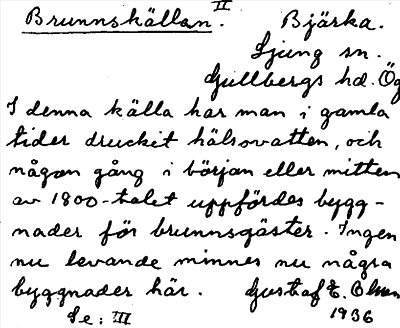 Brunnskällan. II Bjärka.
Ljung sn.
Gullbergs hd. Ög
I denna källa har man i gamla
tider druckit hälsovatten, och
någon gång i början eller mitten
av 1800-talet uppfördes bygg-
nader för brunnsgäster. Ingen
nu levande minnes nu några
byggnader här. Gustaf E. Olsson
Se: III 1936